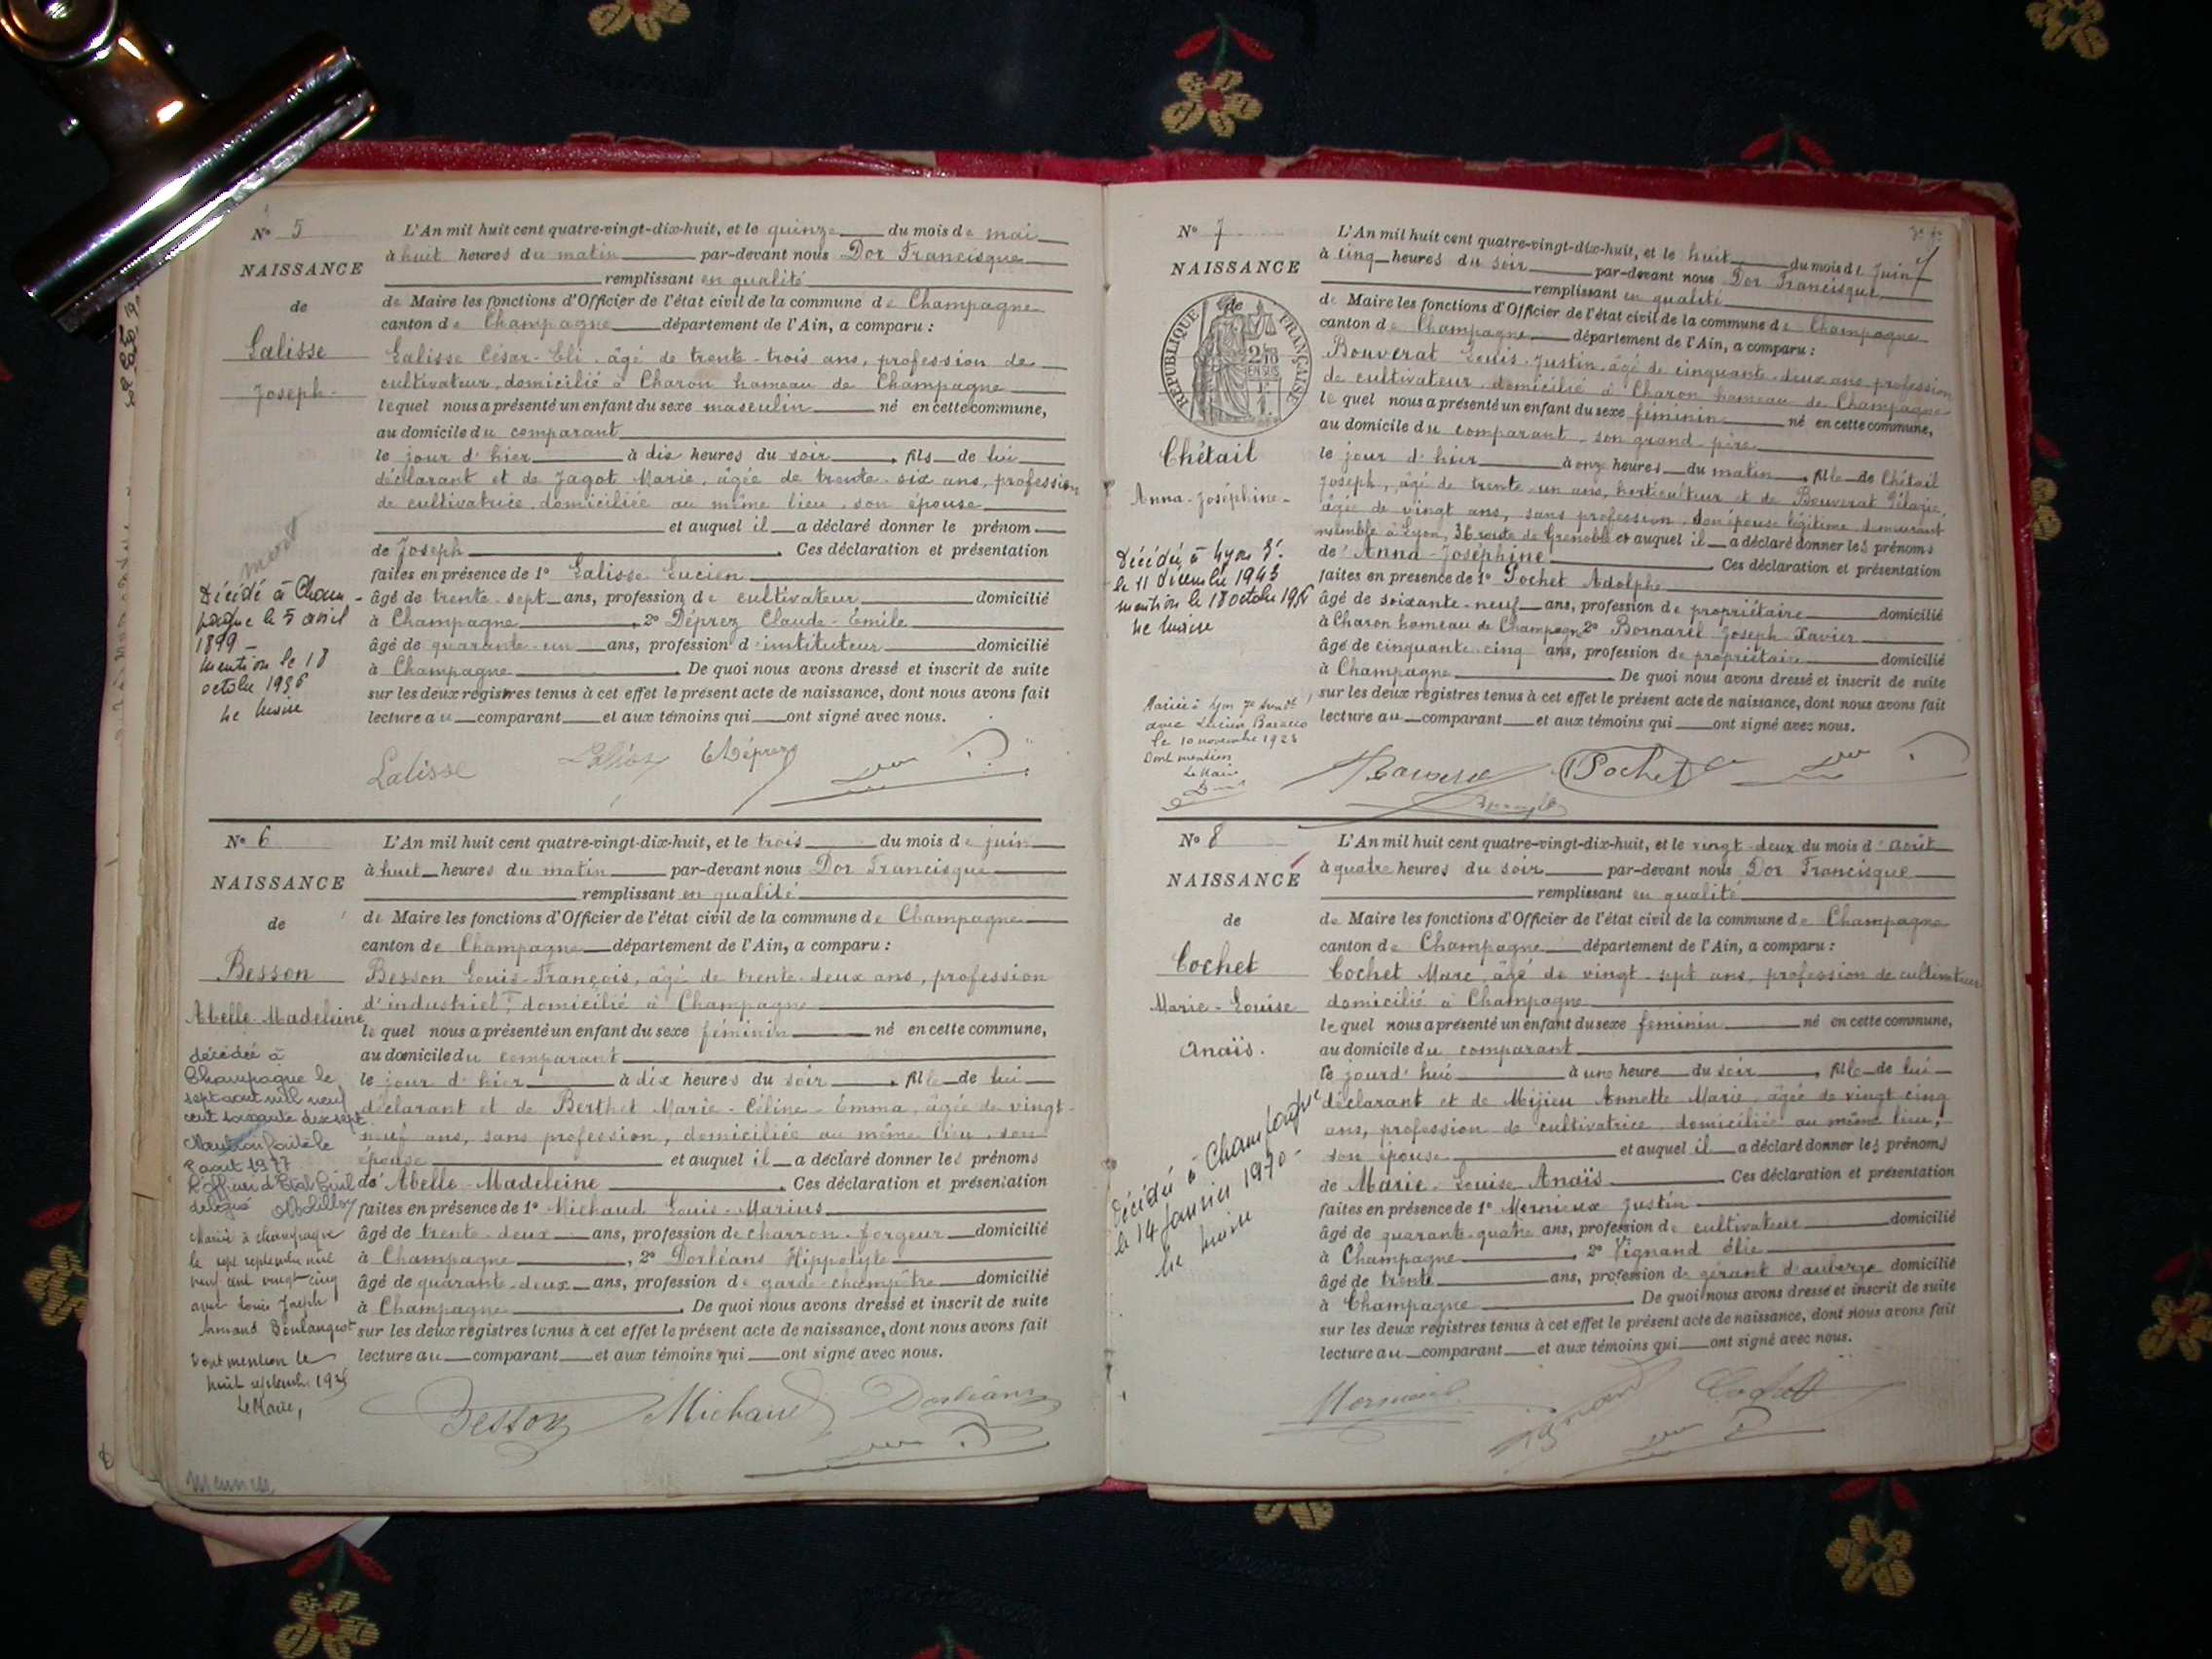 N° 5
NAISSANCE
de
Lalisse
Joseph
L'An mil huit cent quatre-vingt-dix-huit, et le quinze du mois de mai
à huit heures du matin par-devant nous Dor Francisque
remplissant en qualité
de Maire les fonctions d'Officier de l'état civil de la commune de Champagne
canton de Champagne département de l'Ain, a comparu :
Lalisse César-Eli, âgé de trente-trois ans, profession de
cultivateur, domicilié à Charon hameau de Champagne
lequel nous a présenté un enfant du sexe masculin né en cette commune,
au domicile du comparant
le jour d'hier à dix heures du soir, fils de lui
déclarant et de Jagot Marie, âgée de trente-six ans, profession
de cultivatrice, domiciliée au même lieu, son épouse
et auquel il a déclaré donner le prénom
de Joseph. Ces déclaration et présentation
faites en présence de 1° Lalisse Lucien
âgé de trente-sept ans, profession de cultivateur domicilié
à Champagne, 2° Déprez Claude-Émile
âgé de quarante-un ans, profession d'instituteur domicilié
à Champagne. De quoi nous avons dressé et inscrit de suite
sur les deux registres tenus à cet effet le présent acte de naissance, dont nous avons fait
lecture au comparant et aux témoins qui ont signé avec nous.
Décédé à Cham-
pagne le 5 avril
1899
mention le 18
octobre 1956
Le Maire
Lalisse
Déprez
N° 6
NAISSANCE
de
Besson
Abelle-Madeleine
L'An mil huit cent quatre-vingt-dix-huit, et le trois du mois de juin
à huit heures du matin par-devant nous Dor Francisque
remplissant en qualité
de Maire les fonctions d'Officier de l'état civil de la commune de Champagne
canton de Champagne département de l'Ain, a comparu :
Besson Louis-François, âgé de trente-deux ans, profession
d'industriel, domicilié à Champagne
lequel nous a présenté un enfant du sexe féminin né en cette commune,
au domicile du comparant
le jour d'hier à dix heures du soir, fille de lui
déclarant et de Berthet Marie-Céline-Emma, âgée de vingt-
neuf ans, sans profession, domiciliée au même lieu, son
épouse et auquel il a déclaré donner les prénoms
de Abelle-Madeleine. Ces déclaration et présentation
faites en présence de 1° Michaud Louis-Marius
âgé de trente-deux ans, profession de charron-forgeur domicilié
à Champagne, 2° Dorléans Hippolyte
âgé de quarante-deux ans, profession de garde-champêtre domicilié
à Champagne. De quoi nous avons dressé et inscrit de suite
sur les deux registres tenus à cet effet le présent acte de naissance, dont nous avons fait
lecture au comparant et aux témoins qui ont signé avec nous.
décédée à
Champagne le
sept aout mil neuf
cent soixante dix sept
Mention faite le
aout 1977
L'officier d'Etat Civil
délégué
Mariée à Champagne
le sept septembre mil
neuf cent vingt-cinq
avec Louis Joseph
Armand Boulangeot
Dont mention le
huit septembre 1925
Le Maire,
Besson Michaud Dorléans
N° 7
NAISSANCE
de
RÉPUBLIQUE FRANÇAISE
2/10 EN SUS
Chétail
Anna-Joséphine
L'An mil huit cent quatre-vingt-dix-huit, et le huit du mois de juin
à cinq heures du soir par-devant nous Dor Francisque
remplissant en qualité
de Maire les fonctions d'Officier de l'état civil de la commune de Champagne
canton de Champagne département de l'Ain, a comparu :
Bouverat Louis-Justin, âgé de cinquante-deux ans, profession
de cultivateur, domicilié à Charon hameau de Champagne
lequel nous a présenté un enfant du sexe féminin né en cette commune,
au domicile du comparant, son grand-père
le jour d'hier à onze heures du matin, fille de Chétail
Joseph, âgé de trente-un ans, horticulteur et de Bouverat Pélagie,
âgée de vingt ans, sans profession, son épouse légitime demeurant
ensemble à Lyon, 36 route de Grenoble et auquel il a déclaré donner les prénoms
de Anna-Joséphine. Ces déclaration et présentation
faites en présence de 1° Pochet Adolphe
âgé de soixante-neuf ans, profession de propriétaire domicilié
à Charon hameau de Champagne 2° Bornarel Joseph-Xavier
âgé de cinquante-cinq ans, profession de propriétaire domicilié
à Champagne. De quoi nous avons dressé et inscrit de suite
sur les deux registres tenus à cet effet le présent acte de naissance, dont nous avons fait
lecture au comparant et aux témoins qui ont signé avec nous.
Décédée à Lyon 3e
le 11 décembre 1943
mention le 18 octobre 1956
Le Maire
Mariée à Lyon 7e arrondt
avec Lucien
le 10 novembre 1928
Dont mention
Le Maire
Pochet
N° 8
NAISSANCE
de
Cochet
Marie-Louise
Anaïs.
L'An mil huit cent quatre-vingt-dix-huit, et le vingt-deux du mois d'août
à quatre heures du soir par-devant nous Dor Francisque
remplissant en qualité
de Maire les fonctions d'Officier de l'état civil de la commune de Champagne
canton de Champagne département de l'Ain, a comparu :
Cochet Marc, âgé de vingt-sept ans, profession de cultivateur
domicilié à Champagne
lequel nous a présenté un enfant du sexe féminin né en cette commune,
au domicile du comparant
ce jourd'hui à une heure du soir, fille de lui
déclarant et de Mijieu Annette Marie, âgée de vingt cinq
ans, profession de cultivatrice, domiciliée au même lieu,
son épouse et auquel il a déclaré donner les prénoms
de Marie-Louise Anaïs. Ces déclaration et présentation
faites en présence de 1° Mornieux Justin
âgé de quarante-quatre ans, profession de cultivateur domicilié
à Champagne, 2° Vignand élie
âgé de trente ans, profession de gérant d'auberge domicilié
à Champagne. De quoi nous avons dressé et inscrit de suite
sur les deux registres tenus à cet effet le présent acte de naissance, dont nous avons fait
lecture au comparant et aux témoins qui ont signé avec nous.
Décédée à Champagne
le 14 janvier 1970
Le Maire
Cochet